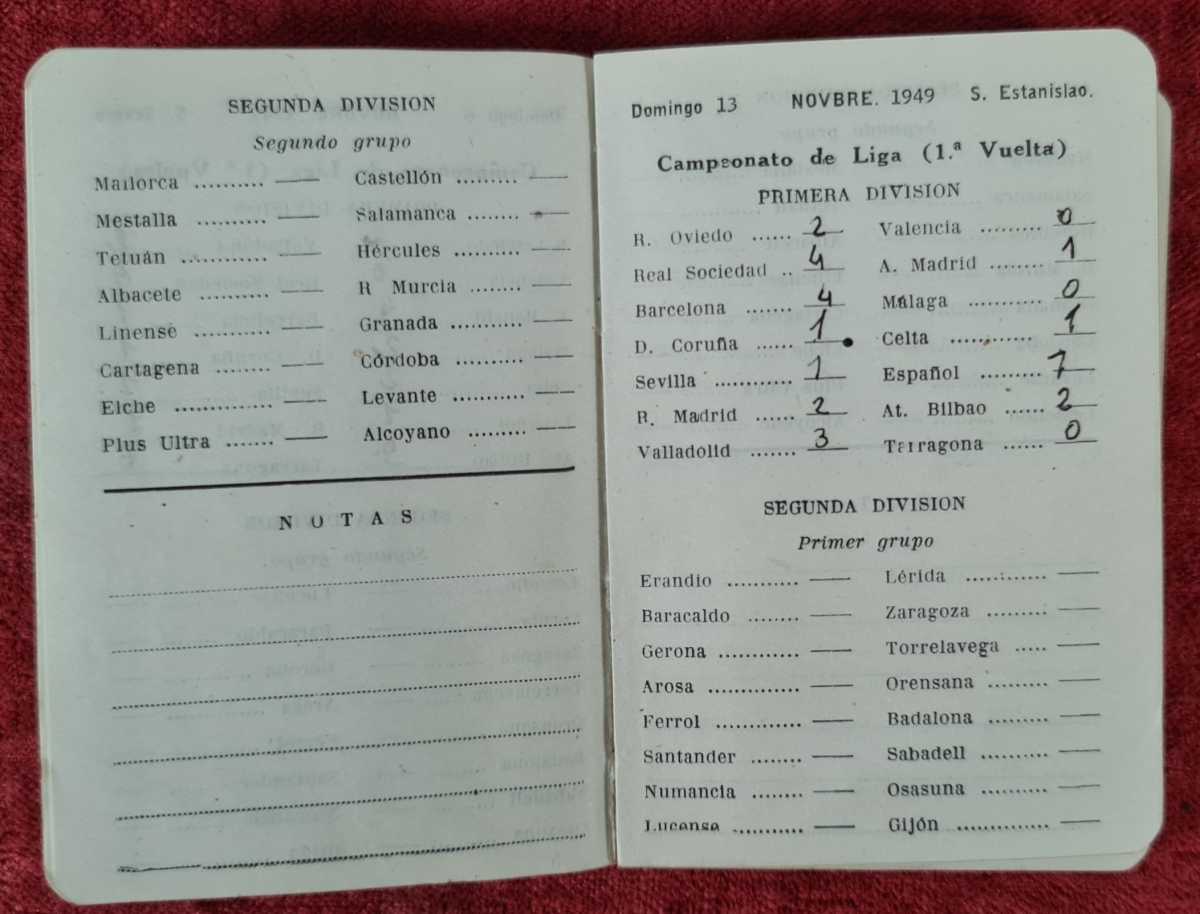 SEGUNDA DIVISION
Segundo grupo
Mallorca .......... —— Castellón ......... ——
Mestalla .......... —— Salamanca ........ ——
Tetuán ............ —— Hércules .......... ——
Albacete .......... —— R Murcia ........ ——
Linense ........... —— Granada ........... ——
Cartagena ........ —— Córdoba ........... ——
Elche .............. —— Levante ........... ——
Plus Ultra ....... —— Alcoyano ......... ——
NOTAS
Domingo 13 NOVBRE. 1949 S. Estanislao.
Campeonato de Liga (1.ª Vuelta)
PRIMERA DIVISION
R. Oviedo ...... 2 Valencia ......... 0
Real Sociedad .. 4 A. Madrid ........ 1
Barcelona ....... 4 Málaga ........... 0
D. Coruña ...... 1 Celta ............ 1
Sevilla ............ 1 Español ......... 7
R. Madrid ...... 2 At. Bilbao ...... 2
Valladolid ....... 3 Tarragona ...... 0
SEGUNDA DIVISION
Primer grupo
Erandio ........... —— Lérida ............ ——
Baracaldo ........ —— Zaragoza ......... ——
Gerona ............ —— Torrelavega ..... ——
Arosa .............. —— Orensana ......... ——
Ferrol ............. —— Badalona ......... ——
Santander ........ —— Sabadell .......... ——
Numancia ........ —— Osasuna .......... ——
Lucense ........... —— Gijón .............. ——